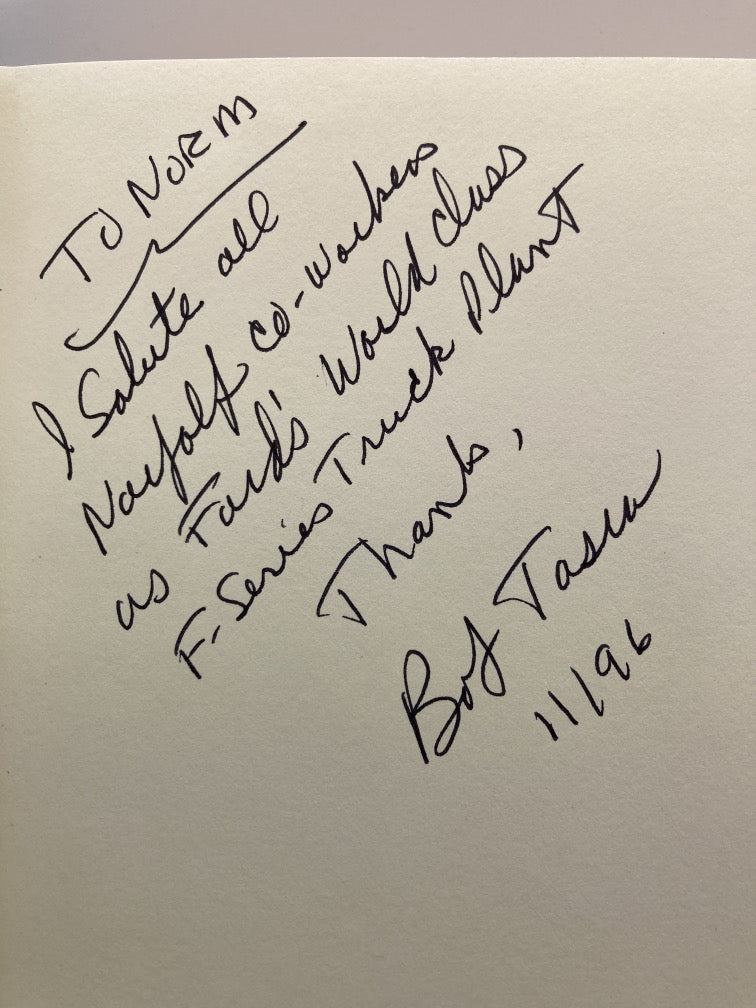 To Norm
I Salute all
Norfolk co-workers
as Ford's World class
F-Series Truck Plant
Thanks,
Bob Tasca
11/96